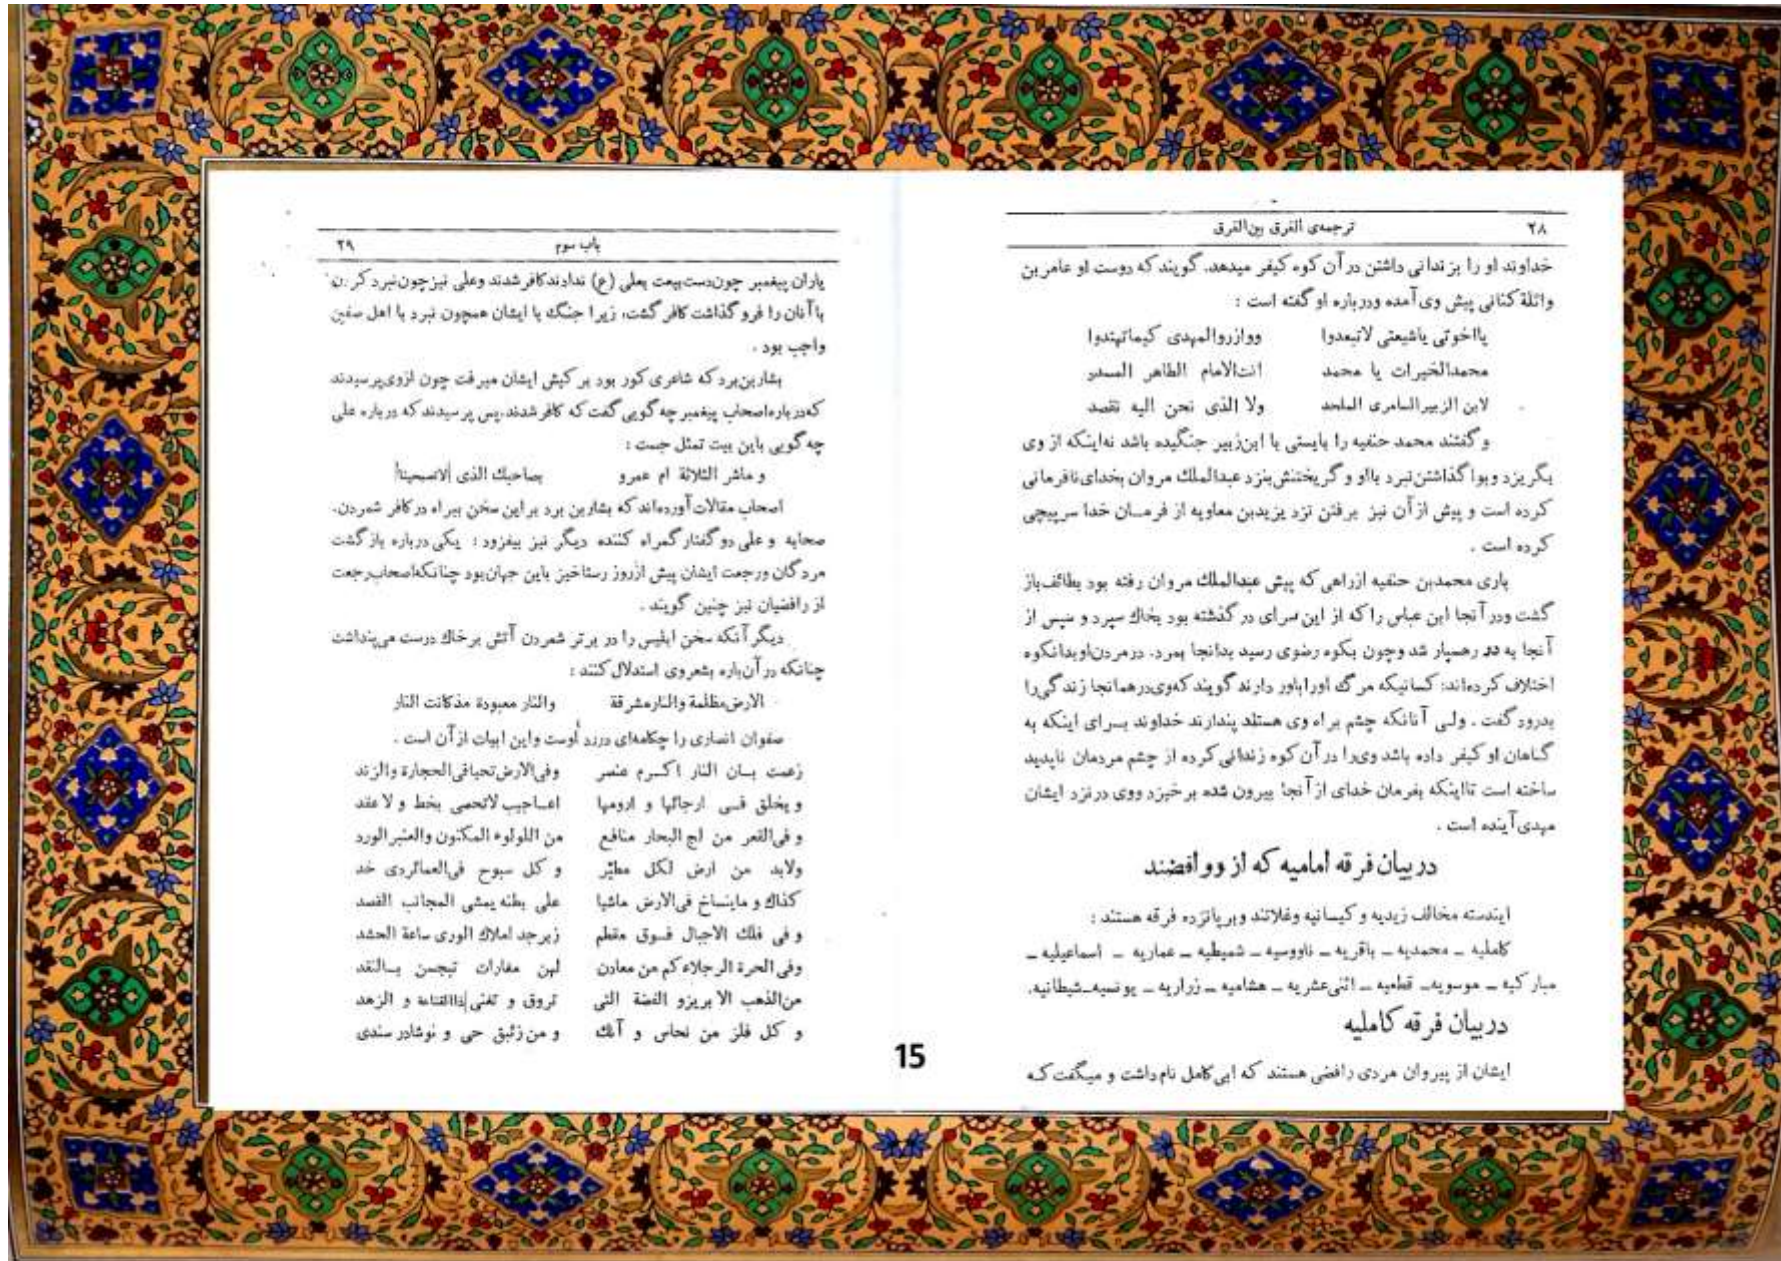 ۲۸ ترجمه‌ی الفرق بین‌الفرق
خداوند او را بزندانی داشتن در آن کوه کیفر میدهد. گویند که دوست او عامر بن
واثلة کنانی پیش وی آمده ودرباره او گفته است :
یااخوتی یاشیعتی لاتبعدوا ووازروالمهدی کیماتهتدوا
محمدالخیرات یا محمد انت‌الامام الطاهر المسدر
لابن الزبیرالسامری الملحد ولا الذی نحن الیه نقصد
و گفتند محمد حنفیه را بایستی با ابن‌زبیر جنگیده باشد نه‌اینکه از وی
بگریزد و بوا گذاشتن نبرد بااو و گریختنش بنزد عبدالملك مروان بخدای نافرمانی
کرده است و پیش از آن نیز برفتن نزد یزیدبن معاویه از فرمــان خدا سرپیچی
کرده است .
باری محمدبن حنفیه ازراهی که پیش عبدالملك مروان رفته بود بطائف باز
گشت ودر آنجا ابن عباس را که از این سرای در گذشته بود بخاك سپرد و سپس از
آنجا به در رهسپار شد وچون بکوه رضوی رسید بدانجا بمرد. درمردن‌اوبدانکوه
اختلاف کرده‌اند: کسانیکه مرگ اوراباور دارند گویند که‌وی‌درهمانجا زندگی را
بدرود گفت . ولـی آنانکه چشم براه وی هستند پندارند خداوند بــرای اینکه به
گناهان او کیفر داده باشد وی‌را در آن کوه زندانی کرده از چشم مردمان ناپدید
ساخته است تااینکه بفرمان خدای از آنجا بیرون شده برخیزد ووی درنزد ایشان
مهدی آینده است .
در بیان فرقه امامیه که از روافضند
ایندسته مخالف زیدیه و کیسانیه وغلاتند وبرپانزده فرقه هستند :
کاملیه ــ محمدیه ــ باقریه ــ ناووسیه ــ شمیطیه ــ عماریه ــ اسماعیلیه ــ
مبارکیه ــ موسویه ــ قطعیه ــ اثنی‌عشریه ــ هشامیه ــ زراریه ــ یونسیه ــ شیطانیه.
در بیان فرقه کاملیه
ایشان از پیروان مردی رافضی هستند که ابی‌کامل نام داشت و میگفت کـه
باب سوم ۲۹
یاران پیغمبر چون‌دست‌بیعت بعلی (ع) ندادند کافر شدند وعلی نیز چون نبرد کردن
با آنان را فرو گذاشت کافر گشت، زیرا جنگ با ایشان همچون نبرد با اهل صفین
واجب بود .
بشاربن‌برد که شاعری کور بود بر کیش ایشان میرفت چون ازوی پرسیدند
که‌درباره‌اصحاب پیغمبر چه گویی گفت که کافر شدند، پس پرسیدند که درباره علی
چه گویی باین بیت تمثل جست :
و ماشر الثلاثة ام عمرو بصاحبك الذی لاتصبحینا
اصحاب مقالات آورده‌اند که بشاربن برد بر این سخن بیراه درکافر شمردن،
صحابه و علی دو گفتار گمراه کننده دیگر نیز بیفزود : یکی درباره بازگشت
مردگان ورجعت ایشان پیش ازروز رستاخیز باین جهان‌بود چنانکه‌اصحاب‌رجعت
از رافضیان نیز چنین گویند .
دیگر آنکه سخن ابلیس را در برتر شمردن آتش برخاك درست می‌پنداشت
چنانکه در آن‌باره بشعر وی استدلال کنند :
الارض‌مظلمة والنارمشرقة والنار معبودة مذکانت النار
صفوان انصاری را چکامه‌ای دررد اوست واین ابیات از آن است .
زعمت بــان النار اکــرم عنصر وفی‌الارض‌تحیافی‌الحجارة والزند
و یخلق فــی ارجائها و ارومها اعــاجیب لاتحصی بخط و لا عقد
و فی‌القعر من لج البحار منافع من اللولوء المکنون والعنبر الورد
ولابد من ارض لکل مطیّر و کل سبوح فی‌العمائر‌ذی خد
کذاك و ماینساخ فی‌الارض ماشیا علی بطنه یمشی المجانب القصد
و فی فلك الاجبال فــوق مقطم زبرجد املاك الوری ساعة الحشد
وفی الحرة الرجلاء کم من معادن لهن مغارات تبجسن بــالنقد
من‌الذهب الابریزو الفضة التی تروق و تغنی ذاالقناعة و الزهد
و کل فلز من نحاس و آنك و من زئبق حی و نوشادر سندی
15